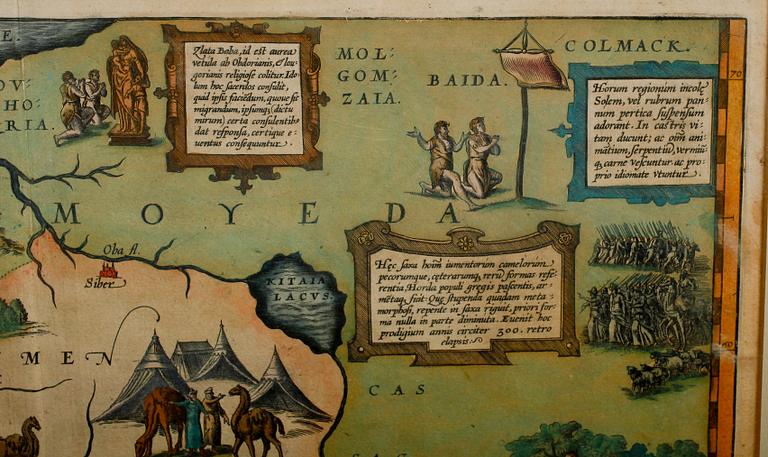 E.
OV
HO
RIA.
Zlata Baba, id est aurea
vetula ab Obdorianis, & Iou-
gorianis religiose colitur. Ido
lum hoc sacerdos consulit,
quid ipsis faciẽdum, quoue sit
migrandum, ipsumq; (dictu
mirum) certa consulentib⁹
dat responsa, certique e-
uentus consequuntur.
MOL
GOM
ZAIA.
BAIDA.
COLMACK.
70
Horum regionum incolę
Solem, vel rubrum pan-
num pertica suspensum
adorant. In castris vi-
tam ducunt; ac oĩm ani-
mãtium, serpentiũ, vermiũ-
q; carne vescuntur. ac pro-
prio idiomate vtuntur.
MOYEDA
Oba fl.
Siber
KITAIA
LACVS.
Hęc saxa hoĩm iumentorum camelorum
pecorumque, ceterarumq; rerũ formas refe-
rentia, Horda populi gregis pascentis, ar-
mẽtaq; fuit. Quę stupenda quadam meta-
morphosi, repente in saxa riguit, priori for-
ma nulla in parte diminuta. Euenit hoc
prodigium annis circiter 300. retro
elapsis.
MEN
CAS